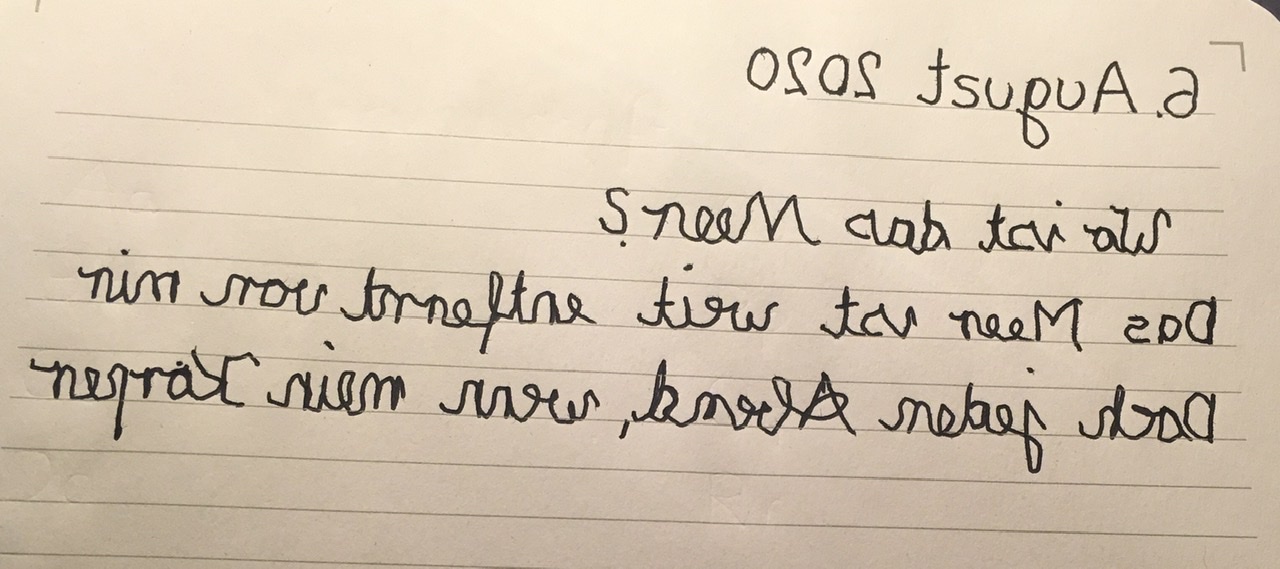 6. August 2020
Wo ist das Meer?
Das Meer ist weit entfernt von mir
Doch jeden Abend, wenn mein Körper